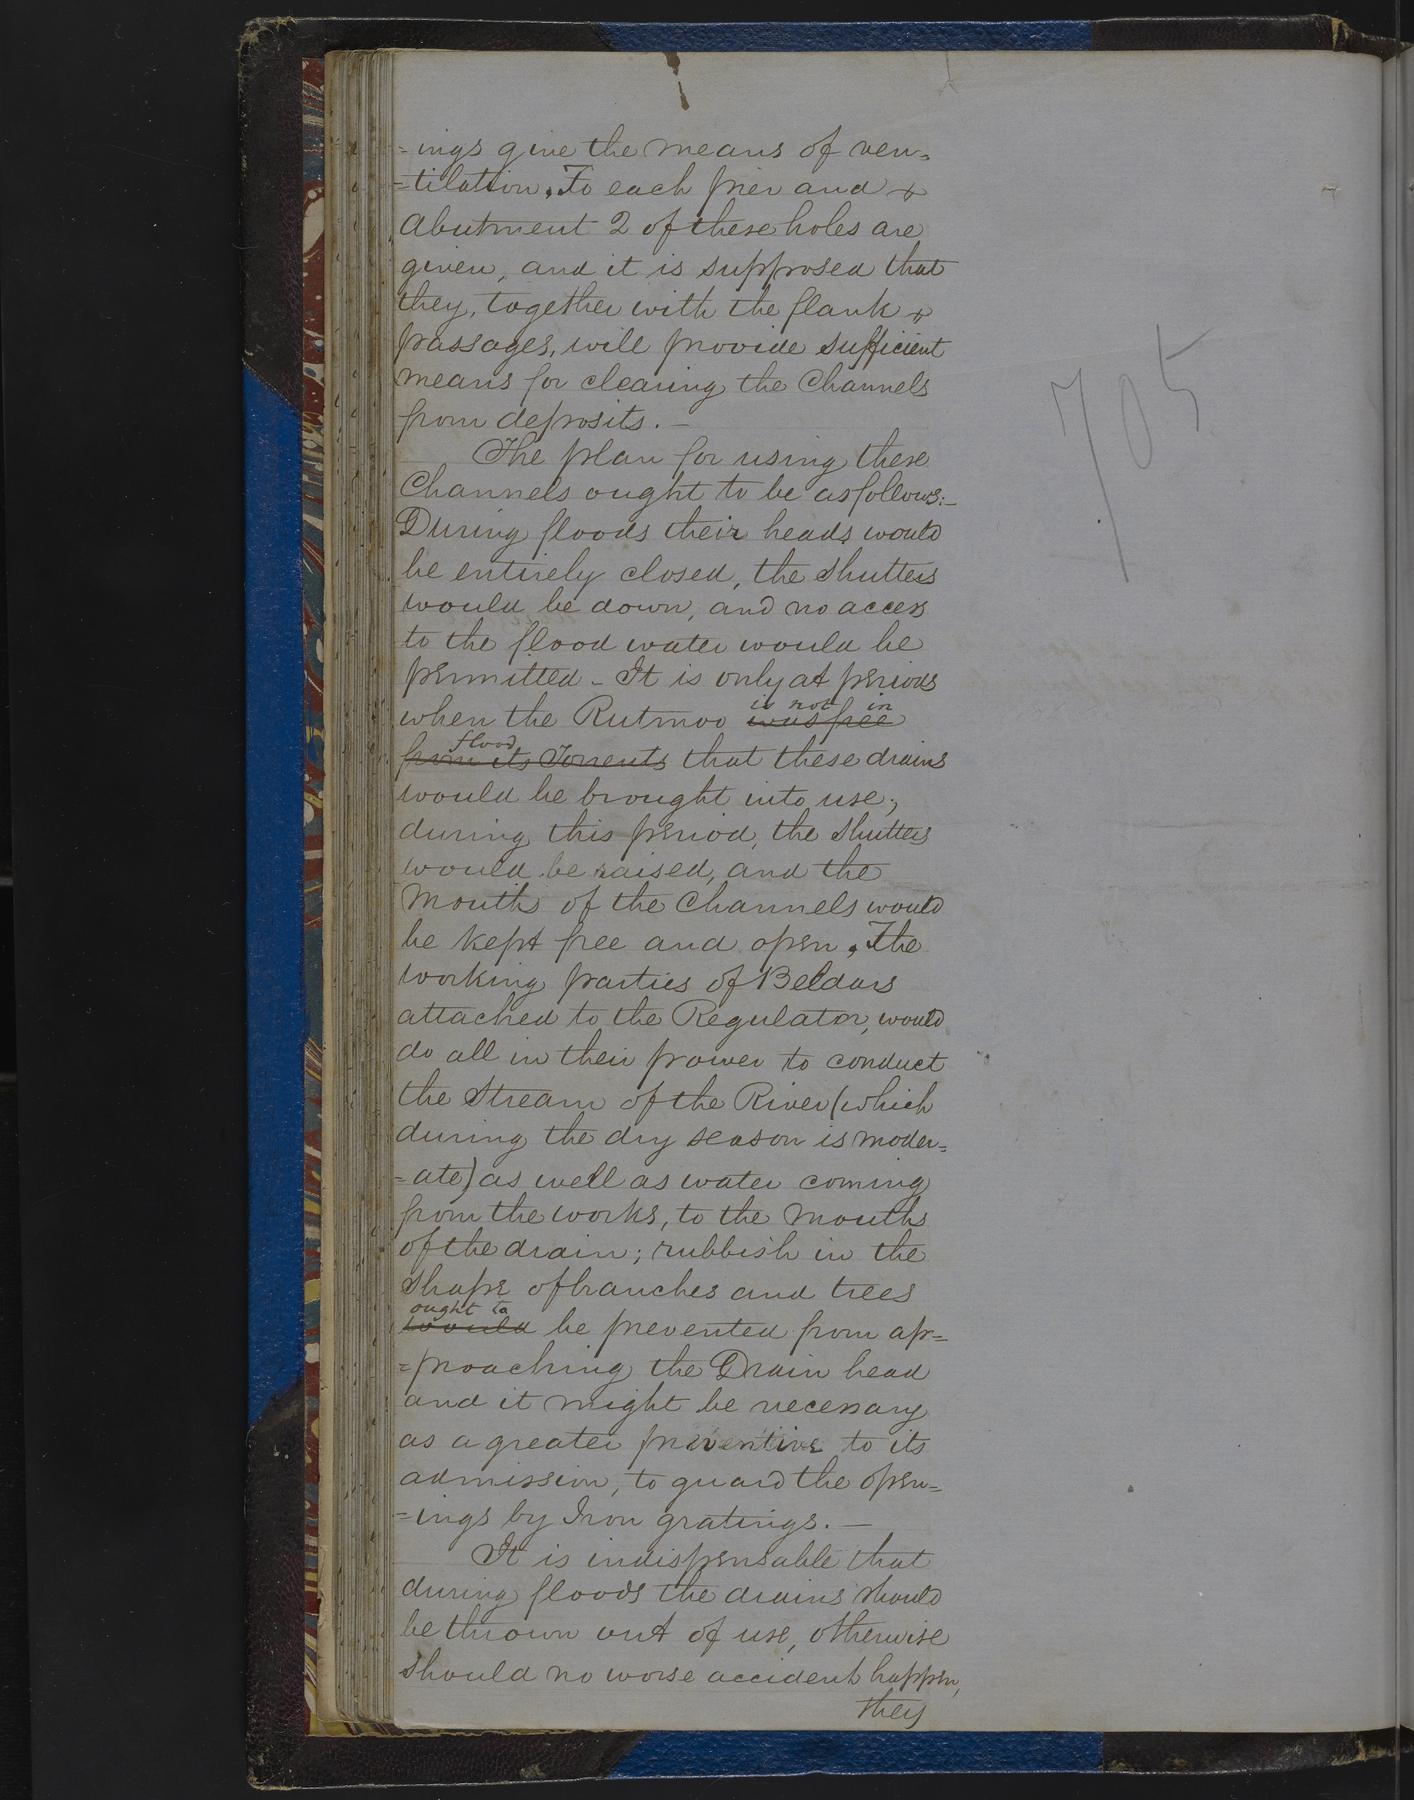 =ings give the means of ven=
=tilation. To each pier and +
Abutment 2 of these holes are
given, and it is supposed that
they, together with the flank +
passages, will provide sufficient
means for clearing the Channels
from deposits. —
The plan for using these
Channels ought to be as follows:—
During floods their heads would
be entirely closed, the shutters
would be down, and no access
to the flood water would be
permitted – It is only at periods
is not in
when the Rutmoo was free
flood
from its Torrents that these drains
would be brought into use;
during this period, the shutters
would be raised, and the
Mouths of the Channels would
be kept free and open. The
working parties of Beldars
attached to the Regulator, would
do all in their power to conduct
the Stream of the River (which
during the dry season is moder=
=ate) as well as water coming
from the works, to the Mouths
of the drain; rubbish in the
shape of branches and trees
ought to
would be prevented from ap=
=proaching the Drain head
and it might be necessary
as a greater preventive to its
admission, to guard the open=
=ings by Iron gratings. —
It is indispensable that
during floods the drains should
be thrown out of use, otherwise
should no worse accident happen,
they
705